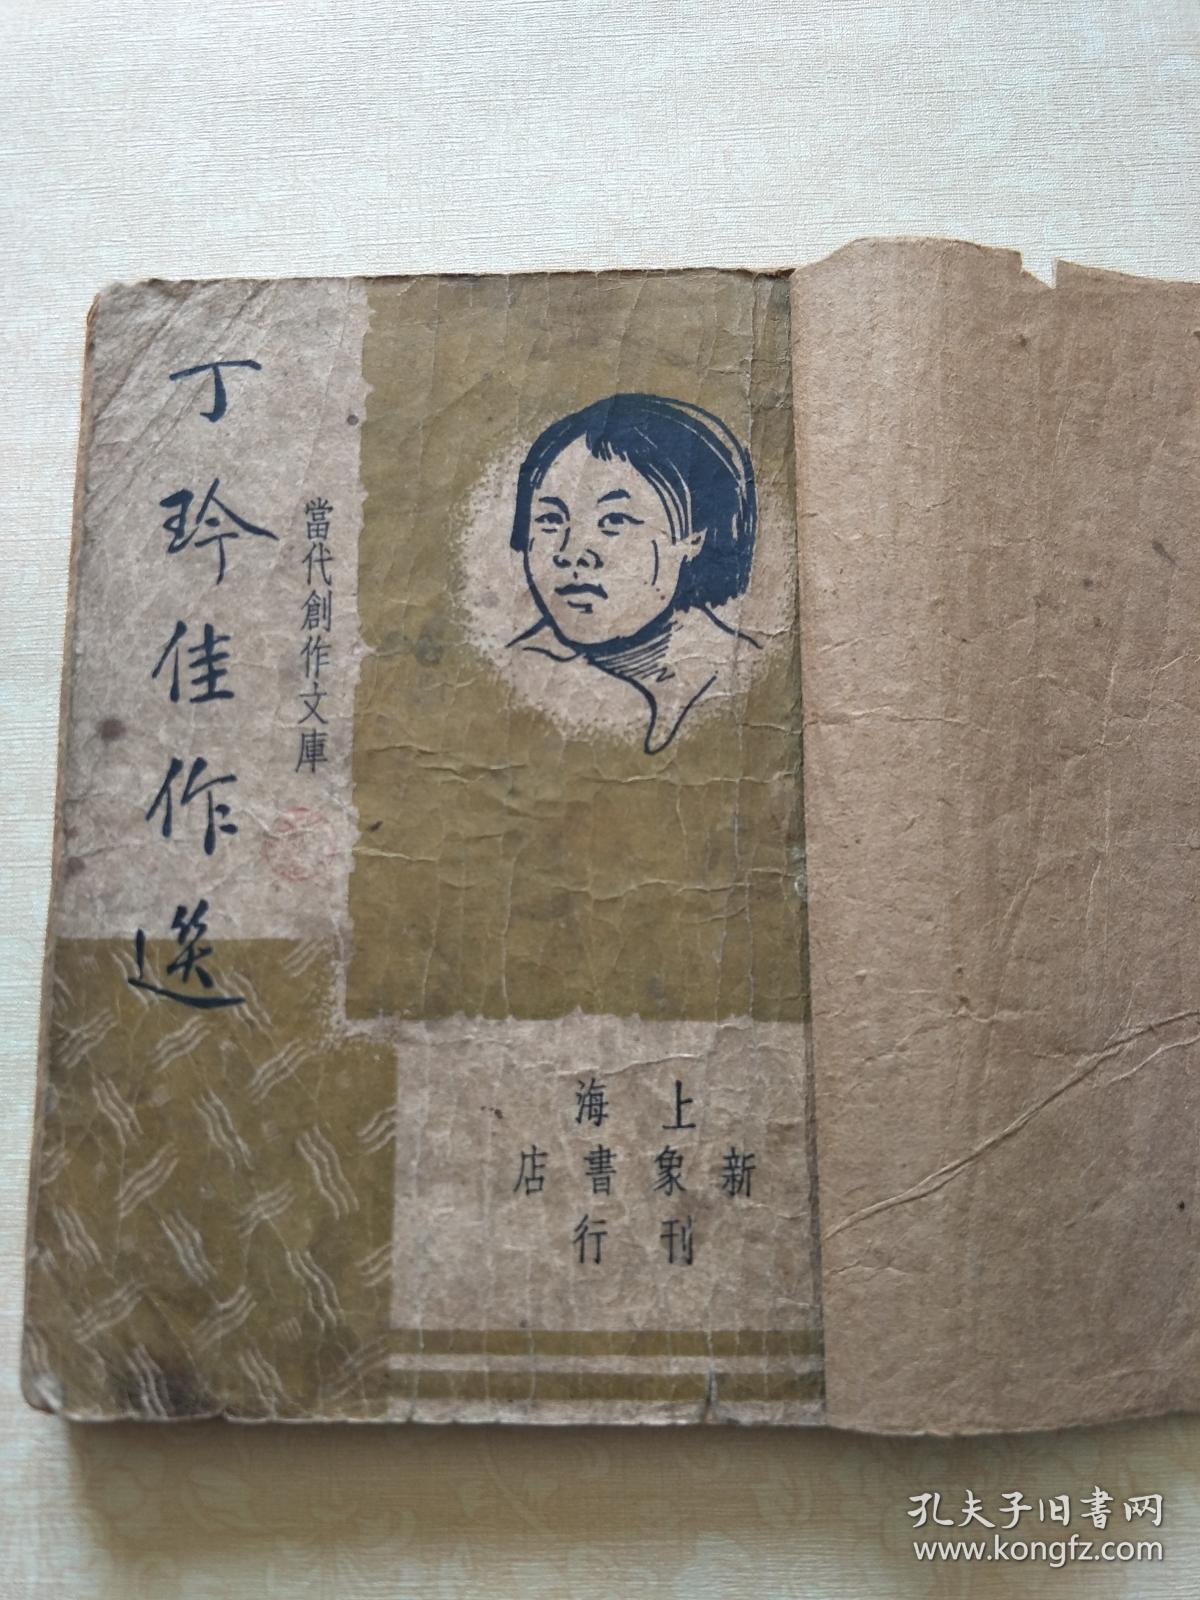 丁玲佳作选
當代創作文庫
上海
新象書店
刊行
孔夫子旧书网
www.kongfz.com